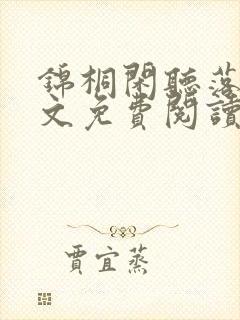 錦桐閑聽落
文免費閱讀
賈宜蒸